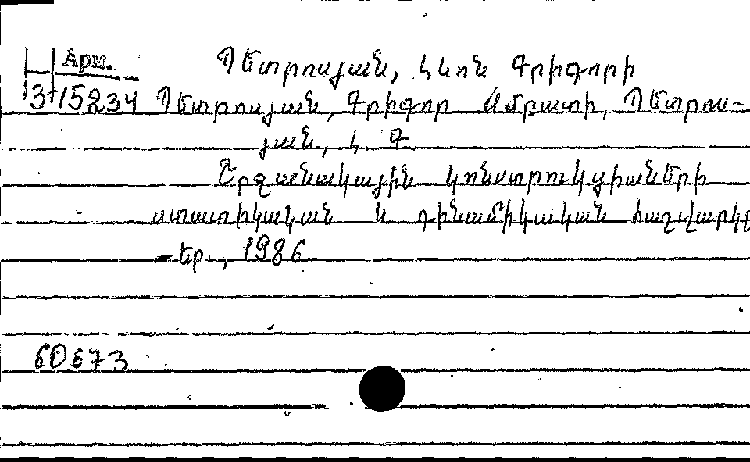 Арм.
Պետրոսյան, Լևոն Գրիգորի
3-15234 Պետրոսյան, Գրիգոր Սմբատի, Պետրոս-
յան, Լ. Գ.
Շրջանակային կոնստրուկցիաների
ստատիկական և դինամիկական հաշվարկը
- Եր., 1986
60673